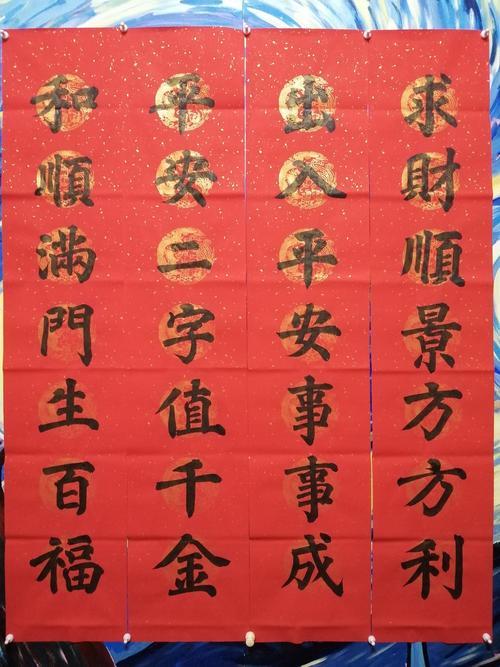 求財順景方方利
出入平安事事成
平安二字值千金
和順滿門生百福